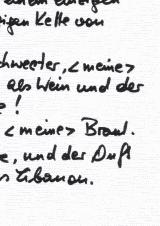 einem einzigen
igen Kette von
chwester, <meine>
als Wein und der
e!
<meine> Braut.
e, und der Duft
s Libanon.